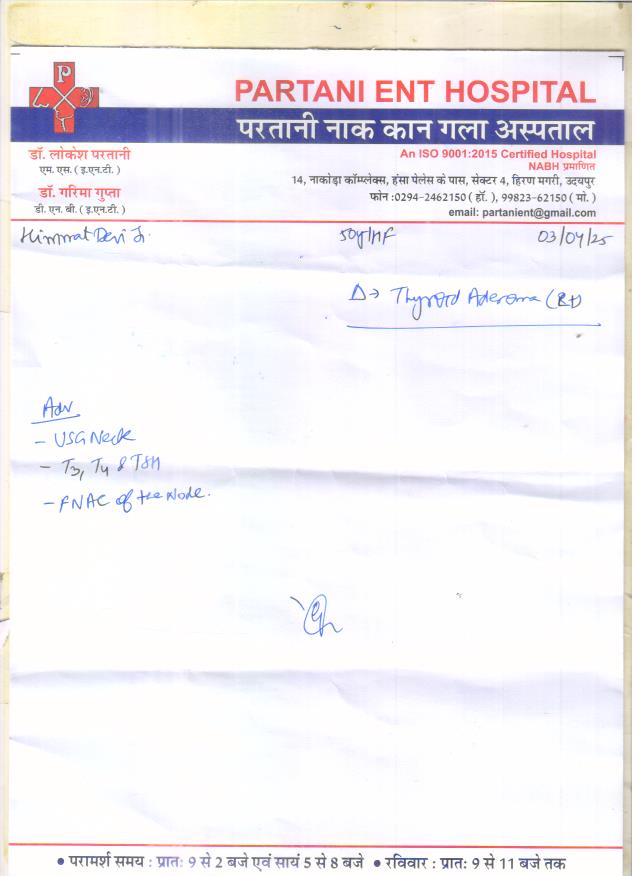 P
PARTANI ENT HOSPITAL
परतानी नाक कान गला अस्पताल
डॉ. लोकेश परतानी
एम. एस. ( इ.एन.टी. )
डॉ. गरिमा गुप्ता
डी. एन. बी. ( इ.एन.टी. )
An ISO 9001:2015 Certified Hospital
NABH प्रमाणित
14, नाकोड़ा कॉम्प्लेक्स, हंसा पेलेस के पास, सेक्टर 4, हिरण मगरी, उदयपुर
फोन :0294-2462150 ( हॉ. ), 99823-62150 ( मो. )
email: partanient@gmail.com
Himmat Devi Ji. 50y/F 03/04/25
Δ→ Thyroid Adenoma (Rt)
Adv
- USG Neck
- T3, T4 & TSH
- FNAC of the Node.
• परामर्श समय : प्रातः 9 से 2 बजे एवं सायं 5 से 8 बजे • रविवार : प्रातः 9 से 11 बजे तक